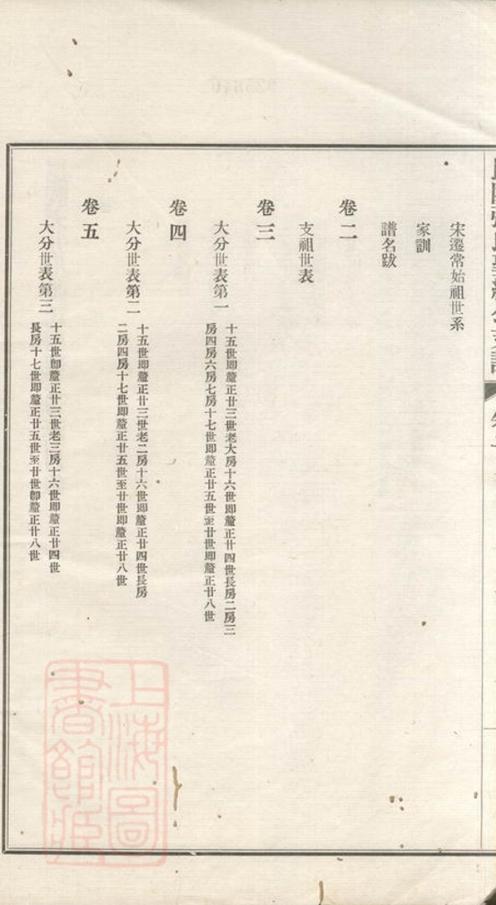 宋遷常始祖世系
家訓
譜名跋
卷二
支祖世表
卷三
大分世表第一
十五世即釐正廿三世老大房十六世即釐正廿四世長房二房三
房四房六房七房十七世即釐正廿五世至廿世即釐正廿八世
卷四
大分世表第二
十五世即釐正廿三世老二房十六世即釐正廿四世長房
二房四房十七世即釐正廿五世至廿世即釐正廿八世
卷五
大分世表第三
十五世即釐正廿三世老三房十六世即釐正廿四世
長房十七世即釐正廿五世至廿世即釐正廿八世
上海圖
書館